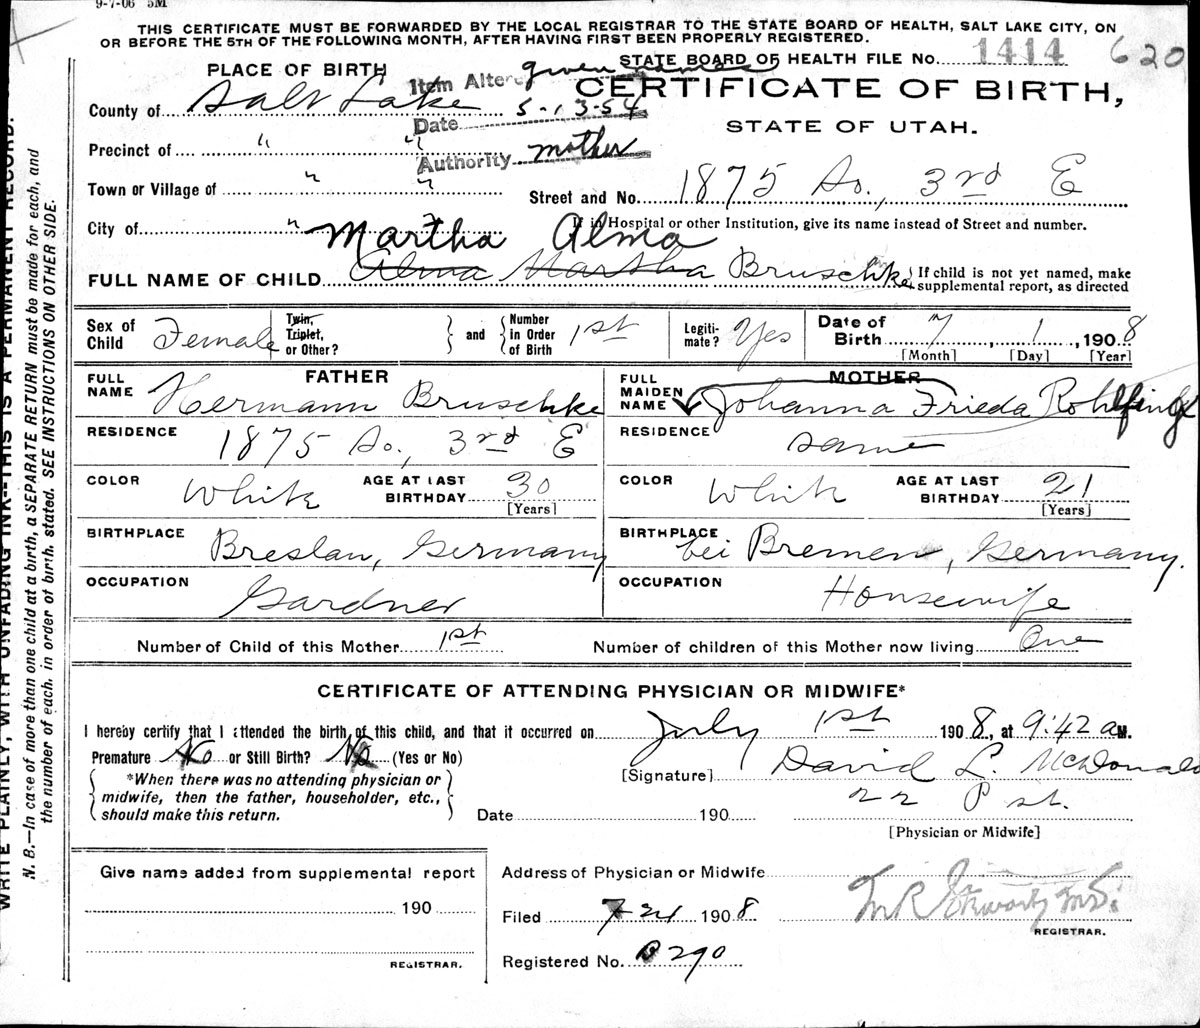 9-7-06 5M
THIS CERTIFICATE MUST BE FORWARDED BY THE LOCAL REGISTRAR TO THE STATE BOARD OF HEALTH, SALT LAKE CITY, ON
OR BEFORE THE 5TH OF THE FOLLOWING MONTH, AFTER HAVING FIRST BEEN PROPERLY REGISTERED.
STATE BOARD OF HEALTH FILE No. 1414 620
PLACE OF BIRTH
Item Altered given names
Date 5-13-54
Authority mother
CERTIFICATE OF BIRTH,
STATE OF UTAH.
County of Salt Lake
Precinct of " "
Town or Village of " "
Street and No. 1875 So., 3rd E
City of "
If in Hospital or other Institution, give its name instead of Street and number.
Martha Alma
FULL NAME OF CHILD Alma Martha Bruschke
If child is not yet named, make
supplemental report, as directed
Sex of Child Female
Twin, Triplet, or Other?
and
Number in Order of Birth 1st
Legiti-mate? Yes
Date of Birth 7, 1, 1908
[Month] [Day] [Year]
FATHER
FULL NAME Hermann Bruschke
MOTHER
FULL MAIDEN NAME Johanna Frieda Rohlfing
RESIDENCE 1875 So., 3rd E
RESIDENCE same
COLOR White
AGE AT LAST BIRTHDAY 30
[Years]
COLOR White
AGE AT LAST BIRTHDAY 21
[Years]
BIRTHPLACE Breslau, Germany
BIRTHPLACE bei Bremen, Germany.
OCCUPATION Gardner
OCCUPATION Housewife
Number of Child of this Mother 1st
Number of children of this Mother now living One
CERTIFICATE OF ATTENDING PHYSICIAN OR MIDWIFE*
I hereby certify that I attended the birth of this child, and that it occurred on July 1st 1908, at 9:42 a M.
Premature No or Still Birth? No (Yes or No)
*When there was no attending physician or
midwife, then the father, householder, etc.,
should make this return.
[Signature] David L. McDonald
22 P st.
Date 190
[Physician or Midwife]
Give name added from supplemental report
190
REGISTRAR.
Address of Physician or Midwife
Filed 1908
M.D.
REGISTRAR.
Registered No. 290
WRITE PLAINLY, WITH UNFADING INK--THIS IS A PERMANENT RECORD.
N. B.—In case of more than one child at a birth, a SEPARATE RETURN must be made for each, and
the number of each, in order of birth, stated. SEE INSTRUCTIONS ON OTHER SIDE.